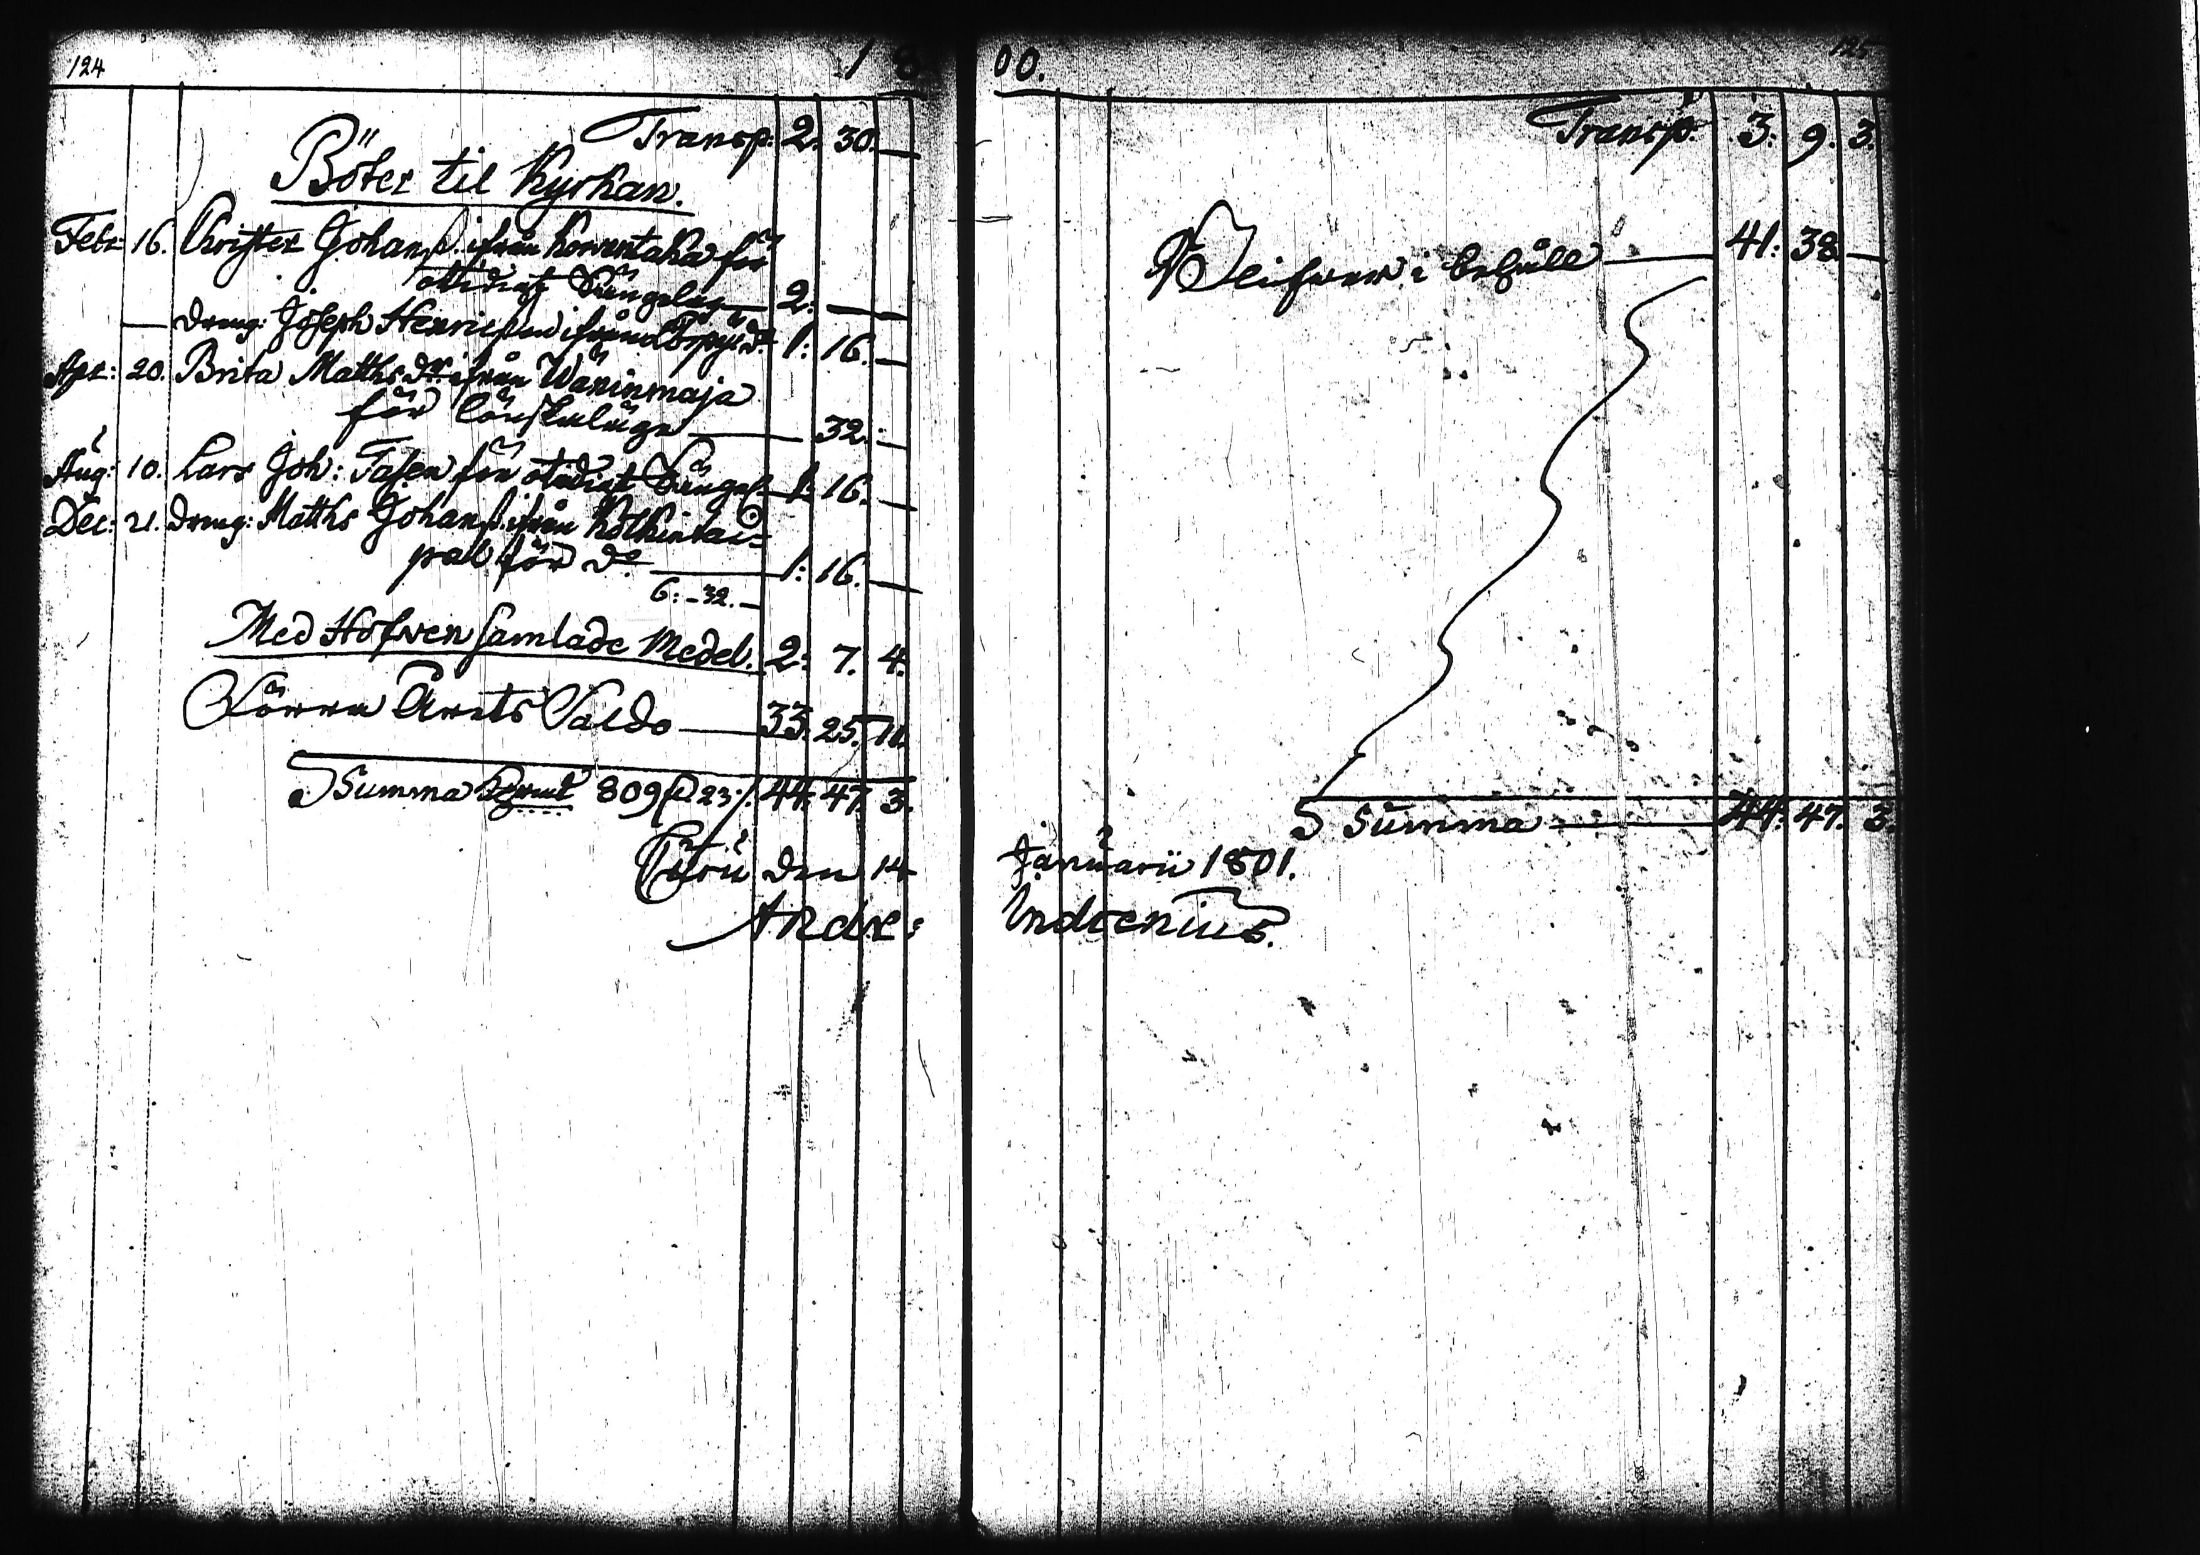 124
18
Transp: 2. 30. —
Böter til Kyrkan.
Febr: 16. Christer Johanß. ifrån Korventaka för
otidigt Sängelag — 2: — —
— Dreng: Joseph Henricsson ifrån d:o 1: 16. —
Apr: 20. Brita Matthsdr ifrån Wäninmaja
för Lönskaläge — 32. —
Aug: 10. Lars Joh: Tasen för otidigt Sängel. 1: 16. —
Dec: 21. Dreng: Matths Johanß. ifrån Kotkintai=
pal för d:o — 1: 16. —
6: -32. —
Med Hofven samlade Medel. 2: 7. 4.
Förra Årets Saldo — 33. 25. 11.
Summa 809 23 44: 47. 3.
Curu den 14
Andr:
00.
125
Transp. 3: 9. 3.
Blifver i behåll — 41: 38. —
Summa — 44: 47. 3.
Januarii 1801.
Indrenius.